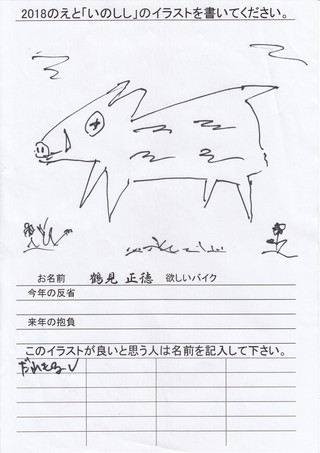 2018のえと「いのしし」のイラストを書いてください。
お名前 鶴見 正徳 欲しいバイク
今年の反省
来年の抱負
このイラストが良いと思う人は名前を記入して下さい。